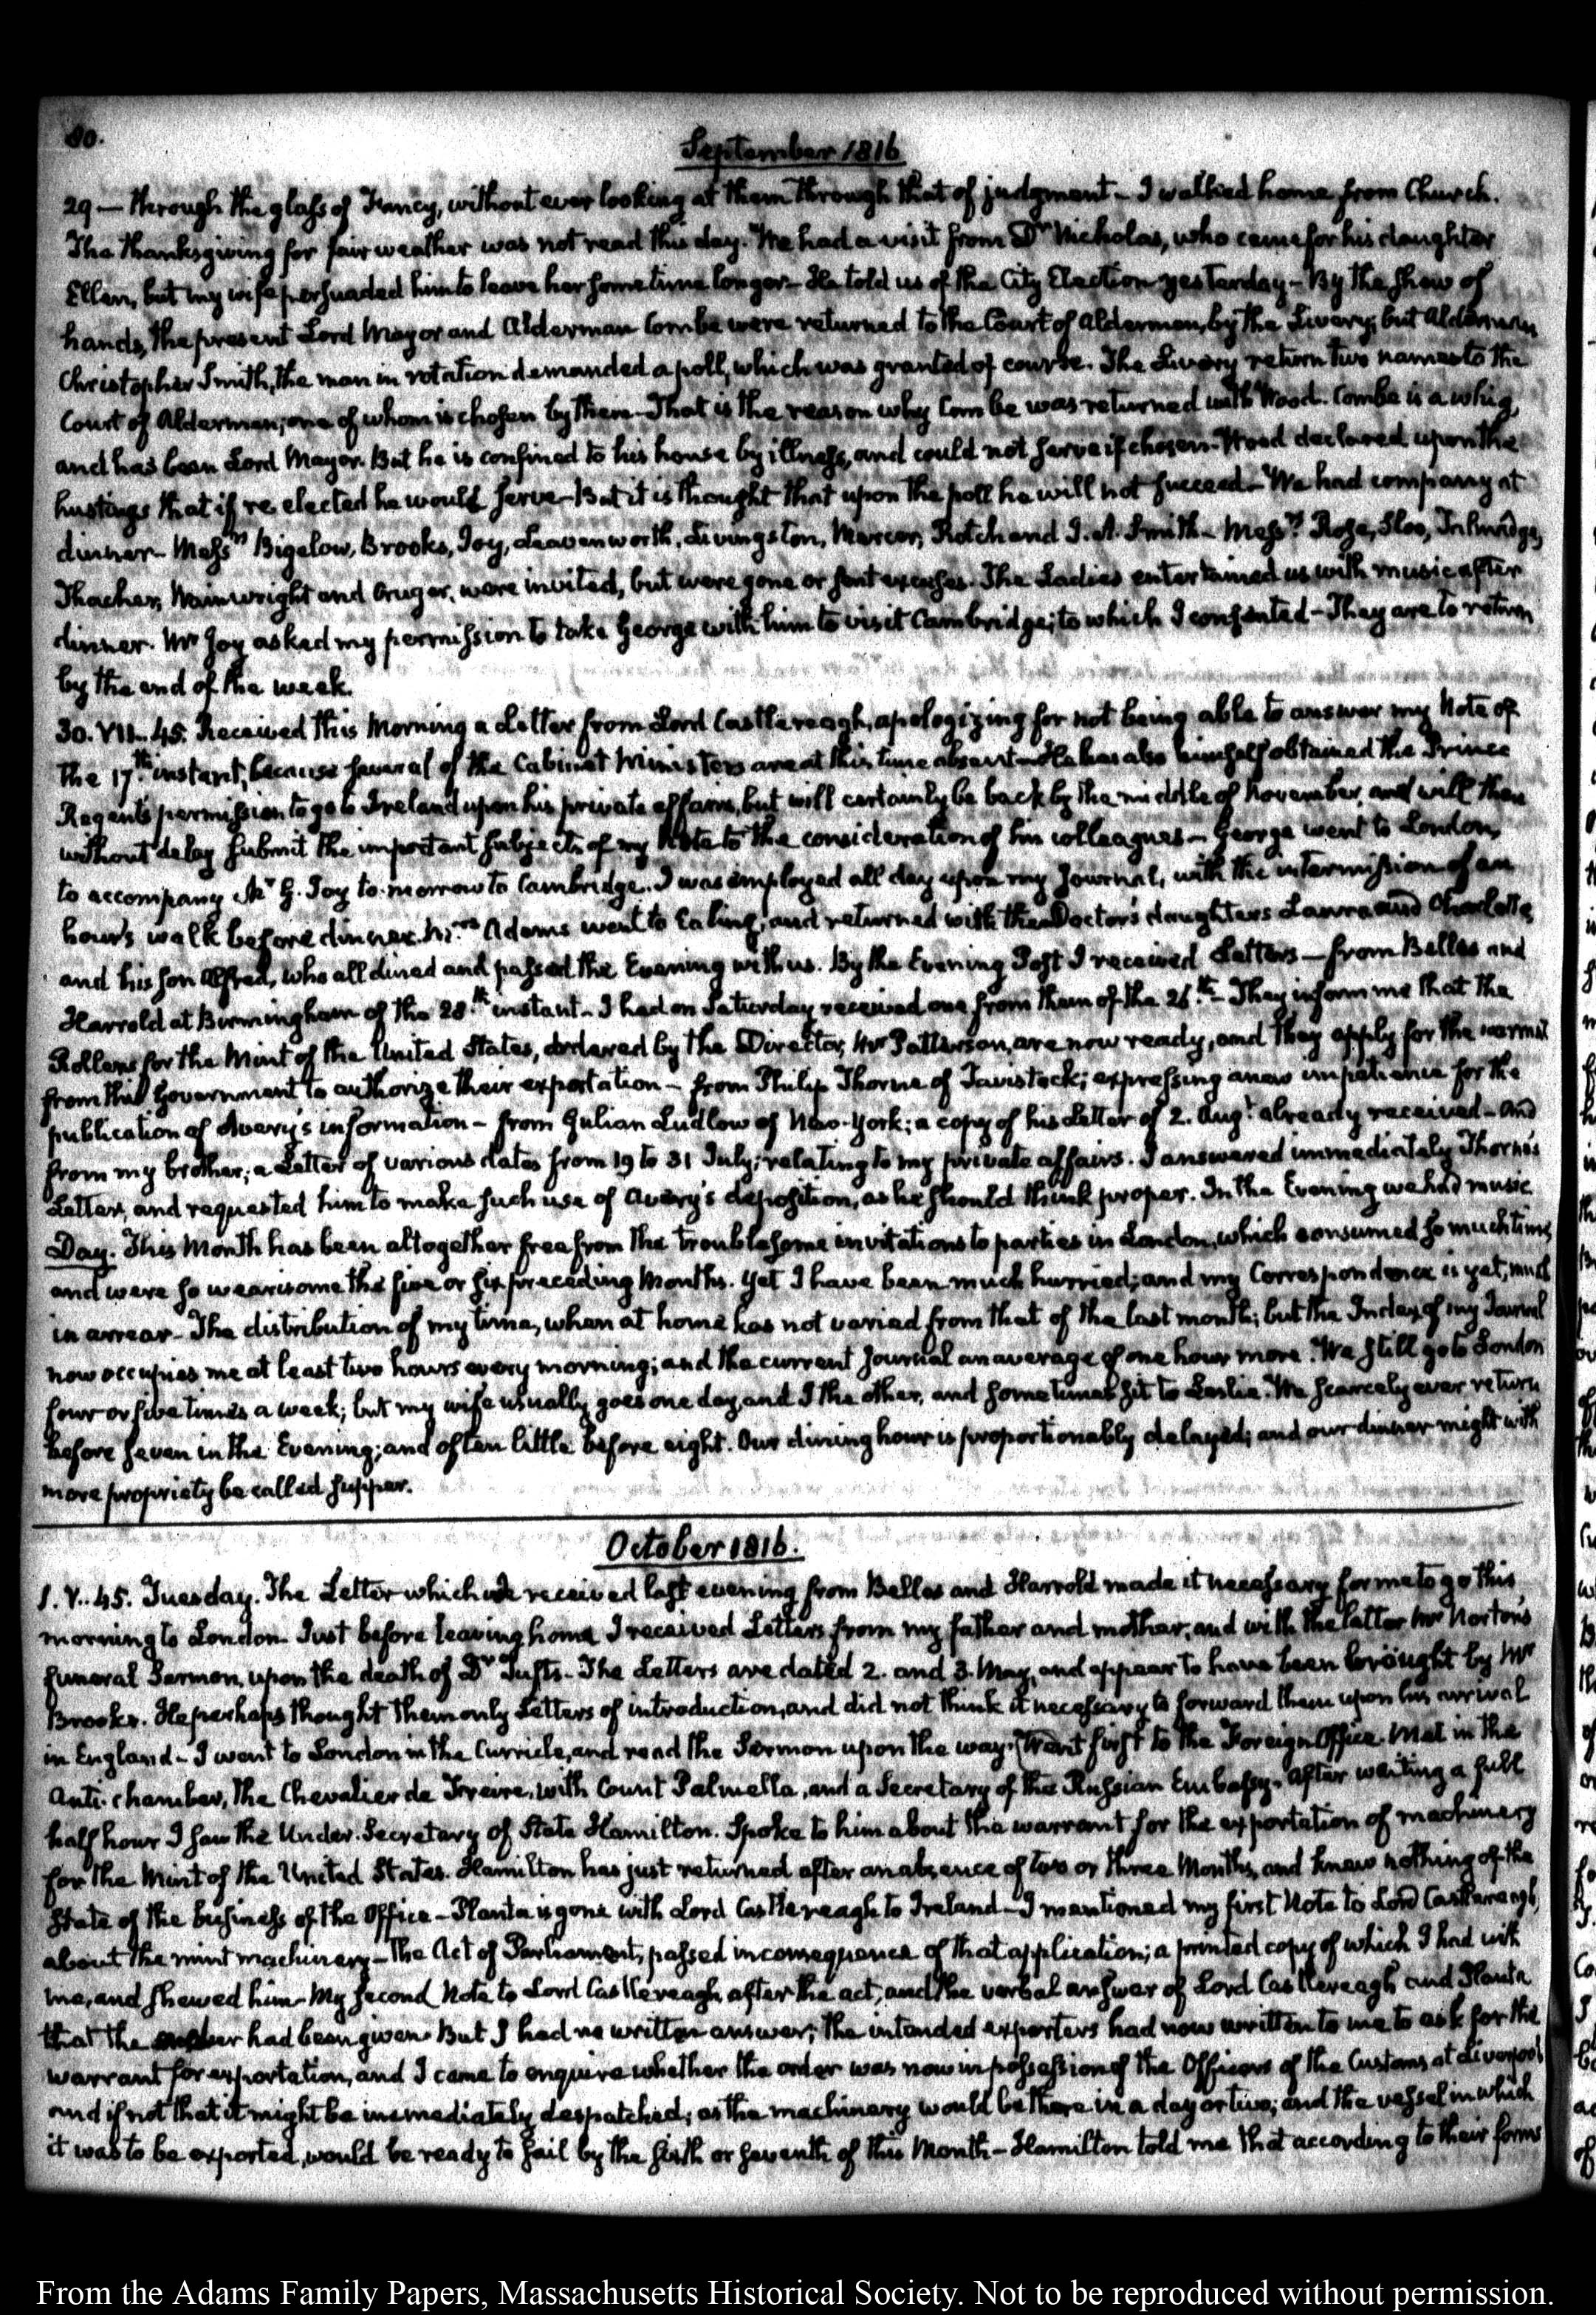 80.
September 1816
29 — through the glass of Fancy, without ever looking at them through that of judgment – I walked home from Church.
The thanksgiving for fair weather was not read this day. We had a visit from Dr Nicholas, who came for his daughter
Ellen, but my wife persuaded him to leave her some time longer – He told us of the City Election yesterday – By the shew of
hands, the present Lord Mayor and Alderman Combe were returned to the Court of Aldermen, by the Livery; but Alderman
Christopher Smith, the man in rotation demanded a poll, which was granted of course. The Livery return two names to the
Court of Aldermen; one of whom is chosen by them – That is the reason why Combe was returned with Wood. Combe is a whig,
and has been Lord Mayor. But he is confined to his house by illness, and could not serve if chosen. Wood declared upon the
hustings that if re-elected he would serve – But it is thought that upon the poll he will not succeed – We had company at
dinner – Messrs Bigelow, Brooks, Joy, Leavenworth, Livingston, Mercer, Rotch and J. A. Smith – Messrs Rose, Sloo,
Thacher, Wainwright and Cruger, were invited, but were gone or sent excuses. The Ladies entertained us with music after
dinner. Mr Joy asked my permission to take George with him to visit Cambridge; to which I consented – They are to return
by the end of the week.
30. VII..45. Received this Morning a Letter from Lord Castlereagh, apologizing for not being able to answer my Note of
the 17th instant, because several of the Cabinet Ministers are at this time absent – He has also himself obtained the Prince
Regent's permission to go to Ireland upon his private affairs, but will certainly be back by the middle of November, and will then
without delay submit the important subjects of my Note to the consideration of his colleagues – George went to London,
to accompany Mr G. Joy to-morrow to Cambridge. I was employed all day upon my Journal, with the intermission of an
hour's walk before dinner. Mrs Adams went to Ealing, and returned with the Doctor's daughters Laura and Charlotte,
and his son Alfred, who all dined and passed the Evening with us. By the Evening Post I received Letters – from Belles and
Harrold at Birmingham of the 28th instant – I had on Saturday received one from them of the 26th – They inform me that the
Rollers for the Mint of the United States, ordered by the Director, Mr Patterson, are now ready, and they apply for the warrant
from this Government to authorize their exportation – from Philip Thorne of Tavistock; expressing anew impatience for the
publication of Avery's information – from Gulian Ludlow of New-York; a copy of his Letter of 2. Augt already received – And
from my brother; a Letter of various dates from 19 to 31 July; relating to my private affairs. I answered immediately Thorne's
Letter, and requested him to make such use of Avery's deposition, as he should think proper. In the Evening we had music
Day. This Month has been altogether free from the troublesome invitations to parties in London, which consumed so much time,
and were so wearisome the five or six preceding Months. Yet I have been much hurried; and my Correspondence is yet, much
in arrear – The distribution of my time, when at home has not varied from that of the last month; but the Index of my Journal
now occupies me at least two hours every morning; and the current Journal an average of one hour more. We still go to London
four or five times a week; but my wife usually goes one day, and I the other, and sometimes sit to Leslie. We scarcely ever return
before seven in the Evening; and often little before eight. Our dining hour is proportionably delayed; and our dinner might with
more propriety be called supper.
October 1816.
1. V..45. Tuesday. The Letter which we received last evening from Belles and Harrold made it necessary for me to go this
morning to London. Just before leaving home I received Letters from my father and mother, and with the latter Mr Norton's
funeral Sermon, upon the death of Dr Tufts – The Letters are dated 2. and 3. May, and appear to have been brought by Mr
Brooks. He perhaps thought them only Letters of introduction, and did not think it necessary to forward them upon his arrival
in England – I went to London in the Curricle, and read the Sermon upon the way. Went first to the Foreign Office. Met in the
Anti-chamber, the Chevalier de Freire, with Count Palmella, and a Secretary of the Russian Embassy. After waiting a full
half hour I saw the Under-Secretary of State Hamilton. Spoke to him about the warrant for the exportation of machinery
for the Mint of the United States. Hamilton has just returned after an absence of two or three Months, and knew nothing of the
state of the business of the Office – Planta is gone with Lord Castlereagh to Ireland – I mentioned my first Note to Lord Castlereagh,
about the mint machinery – The Act of Parliament, passed in consequence of that application; a printed copy of which I had with
me, and shewed him – My second Note to Lord Castlereagh, after the act, and the verbal answer of Lord Castlereagh and Planta
that the order had been given. But I had no written answer; the intended exporters had now written to me to ask for the
warrant for exportation, and I came to enquire whether the order was now in possession of the Officers of the Customs at Liverpool
and if not that it might be immediately despatched; as the machinery would be there in a day or two; and the vessel in which
it was to be exported, would be ready to sail by the sixth or seventh of this Month – Hamilton told me that according to their forms
From the Adams Family Papers, Massachusetts Historical Society. Not to be reproduced without permission.